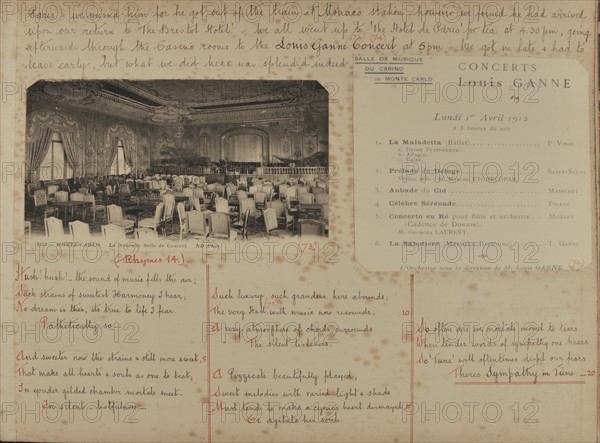 Paris we missed him for he got out of the train at Monaco station, however we found he had arrived
upon our return to 'The Bristol Hotel' - we all went up to 'The Hotel de Paris' for tea at 4.30 pm, going
afterwards through the Casino rooms to the Louis Ganne Concert at 5pm. We got in late & had to
leave early. but what we did hear was splendid indeed
SALLE DE MUSIQUE
DU CASINO
DE MONTE CARLO
CONCERTS
Louis GANNE
Lundi 1er Avril 1912
à 5 heures du soir
1. La Maladetta (Ballet) P. Vidal
a. Danse Pyrénéenne.
b. Adagio.
2. Prélude du Déluge Saint-Saëns
3. Aubade du Cid Massenet
4. Célèbre Sérénade Pierné
5. Concerto en Ré pour flûte et orchestre Mozart
(Cadence de Donjon)
M. Georges LAURENT.
6. La Sabotière L. Ganne
L'Orchestre sous la direction de M. Louis GANNE
MONTE CARLO. La Nouvelle Salle de Concert. ND Phot.
(72)
(Rhymes 14.)
Hush! hush! the sound of music fills the air,
Such strains of sweetest Harmoney I hear,
No dream is this, its true to life I fear.
Pathetically so -
And sweeter now the strains & still more sweet, 5
That make all hearts & souls as one to beat,
In yonder gilded chamber mortals meet.
In silent
Such luxury, such grandeur here abounds,
The very Hall with music now resounds, 10
A very atmosphere of chords surrounds
The silent listeners.
A Pizzicati beautifully played,
Sweet melodies with varied light & shade
Must tend to make a cynic's heart dismayed, 15
Or agitate his soul.
So often are we mortals moved to tears
When tender words of sympathy one hears
So 'Tune' will oftentimes dispel our fears
Theres Sympathy in Tune - 20